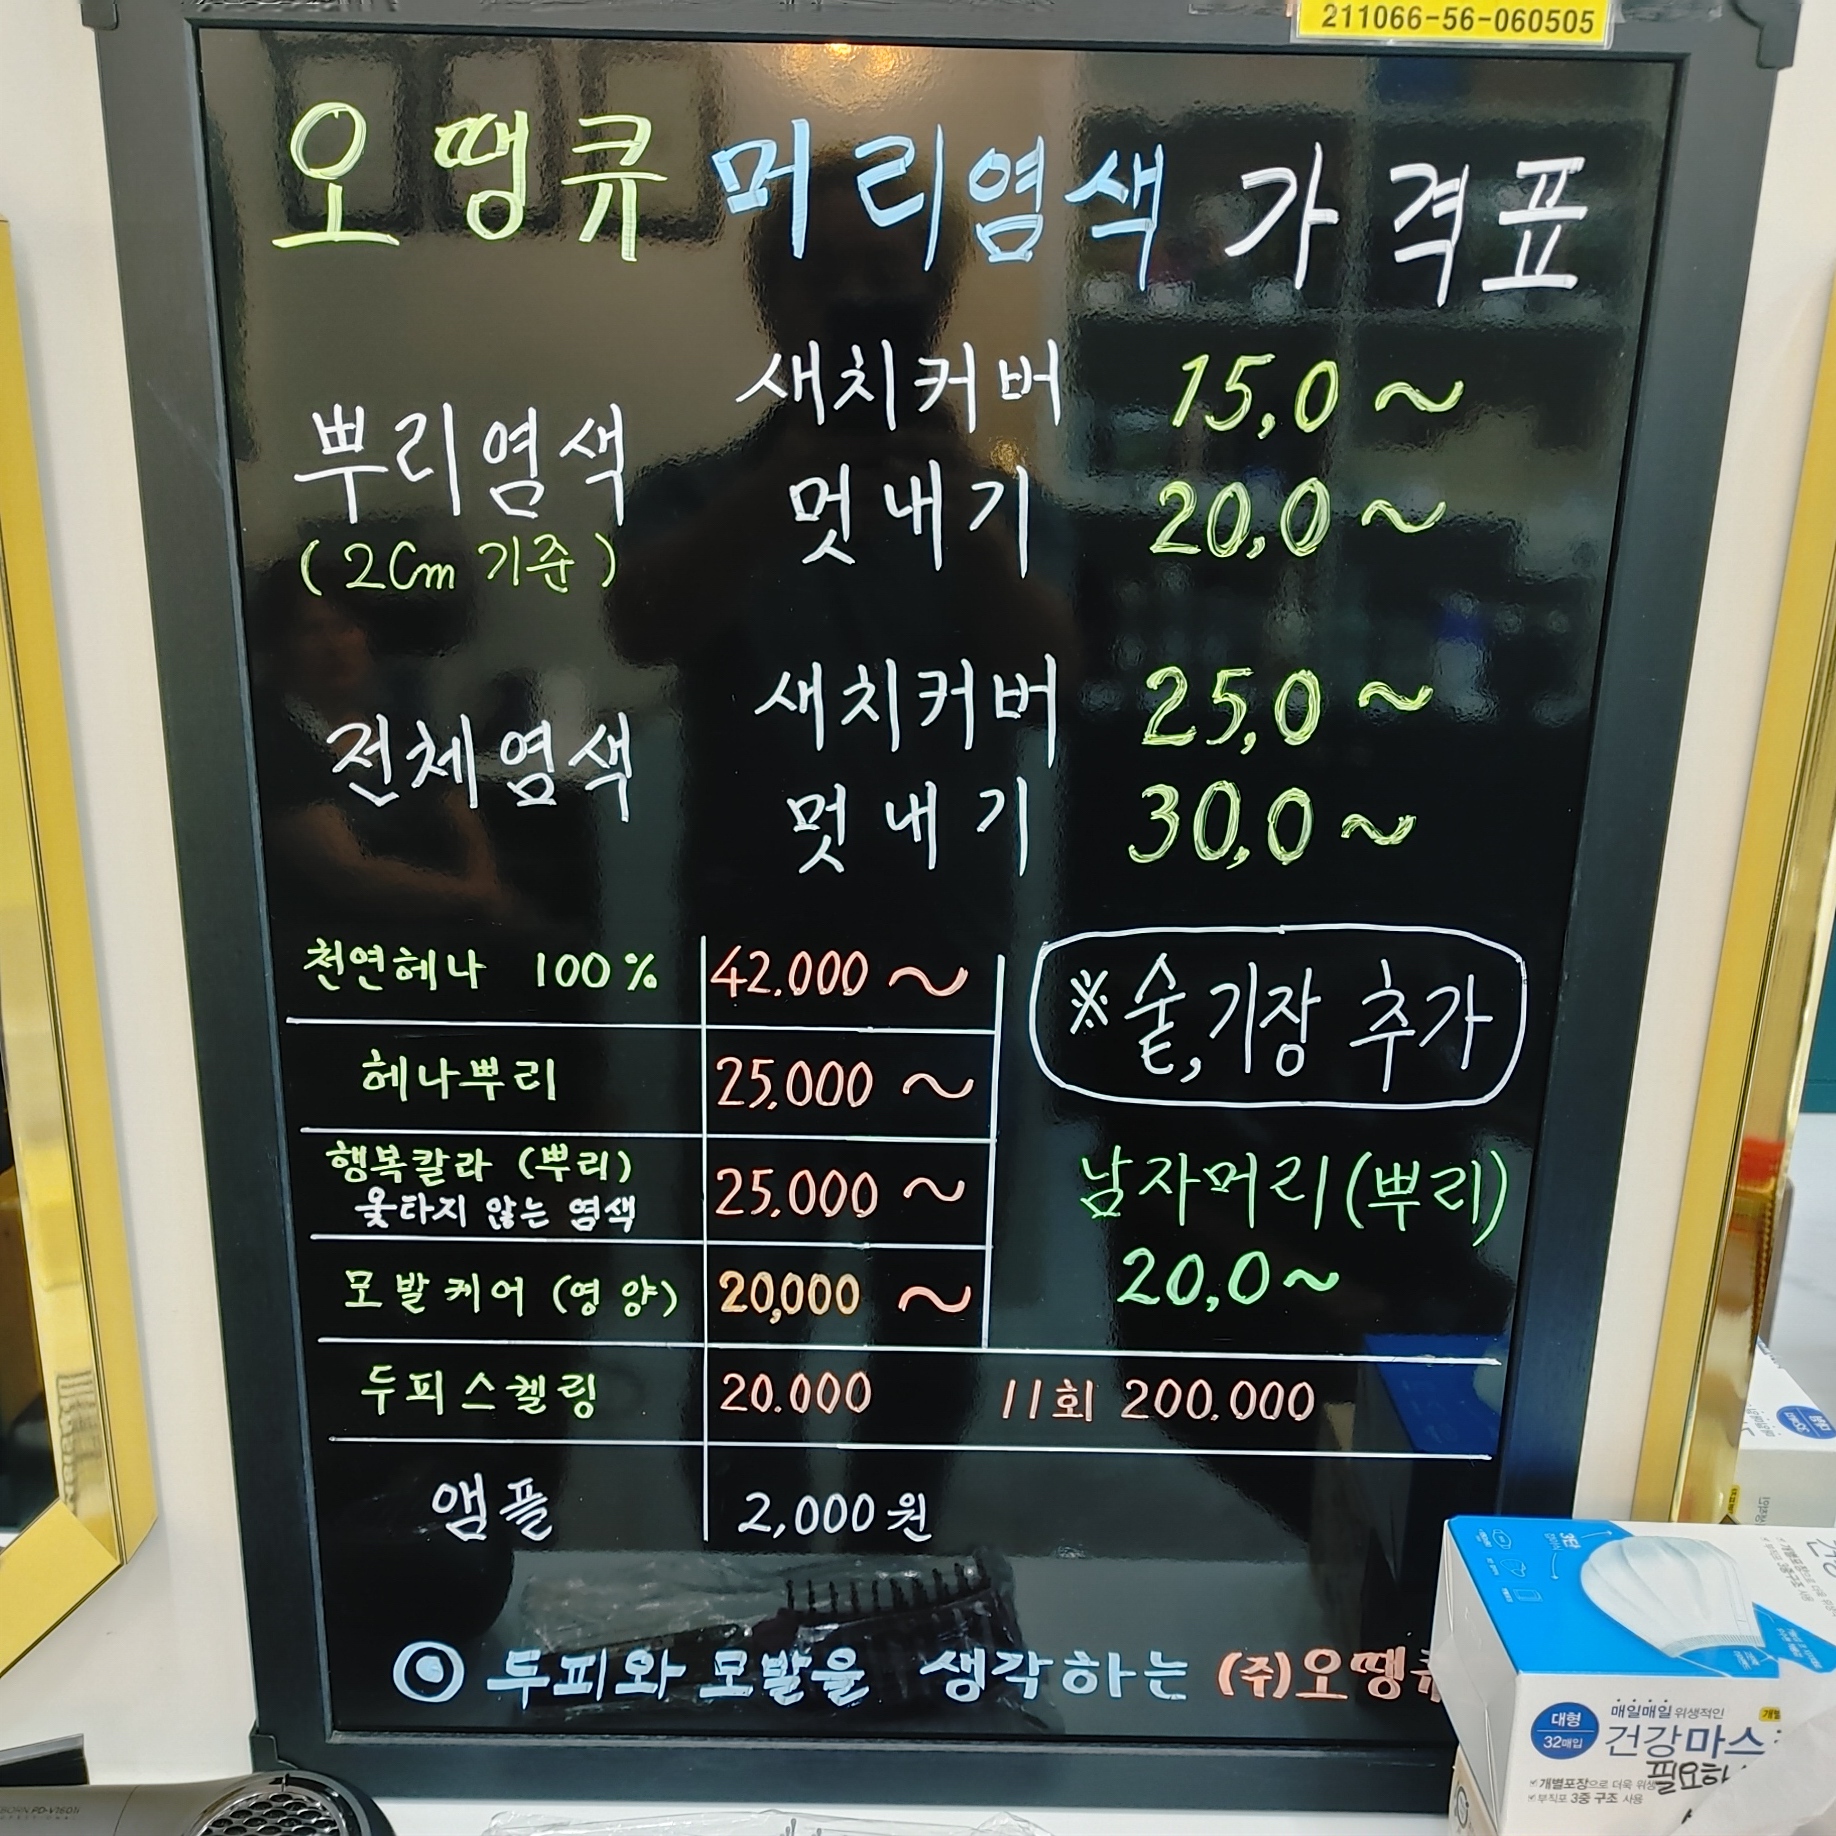 211066-56-060505
오땡큐 머리염색 가격표
뿌리염색
(2Cm 기준)
새치커버 15,0~
멋내기 20,0~
전체염색
새치커버 25,0~
멋내기 30,0~
천연헤나 100% 42.000~
헤나뿌리 25,000~
행복칼라 (뿌리) 25,000~
옻타지 않는 염색
모발케어 (영양) 20,000~
※숱,기장 추가
남자머리(뿌리)
20,0~
두피스켈링 20.000 11회 200.000
앰플 2,000원
◎ 두피와 모발을 생각하는 (주)오땡큐
대형
32매입
매일매일 위생적인
건강마스
필요하
개별포장으로 더욱 위생
부직포 3중 구조 사용
PD-V1601i